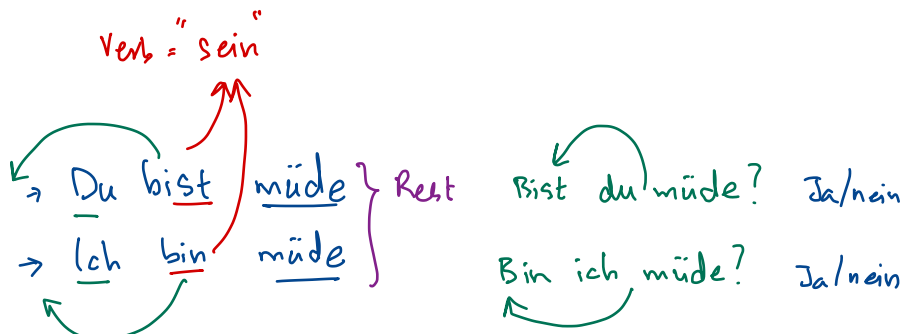 Verb = "sein"
→ Du bist müde } Rest Bist du müde? Ja/nein
→ Ich bin müde Bin ich müde? Ja/nein